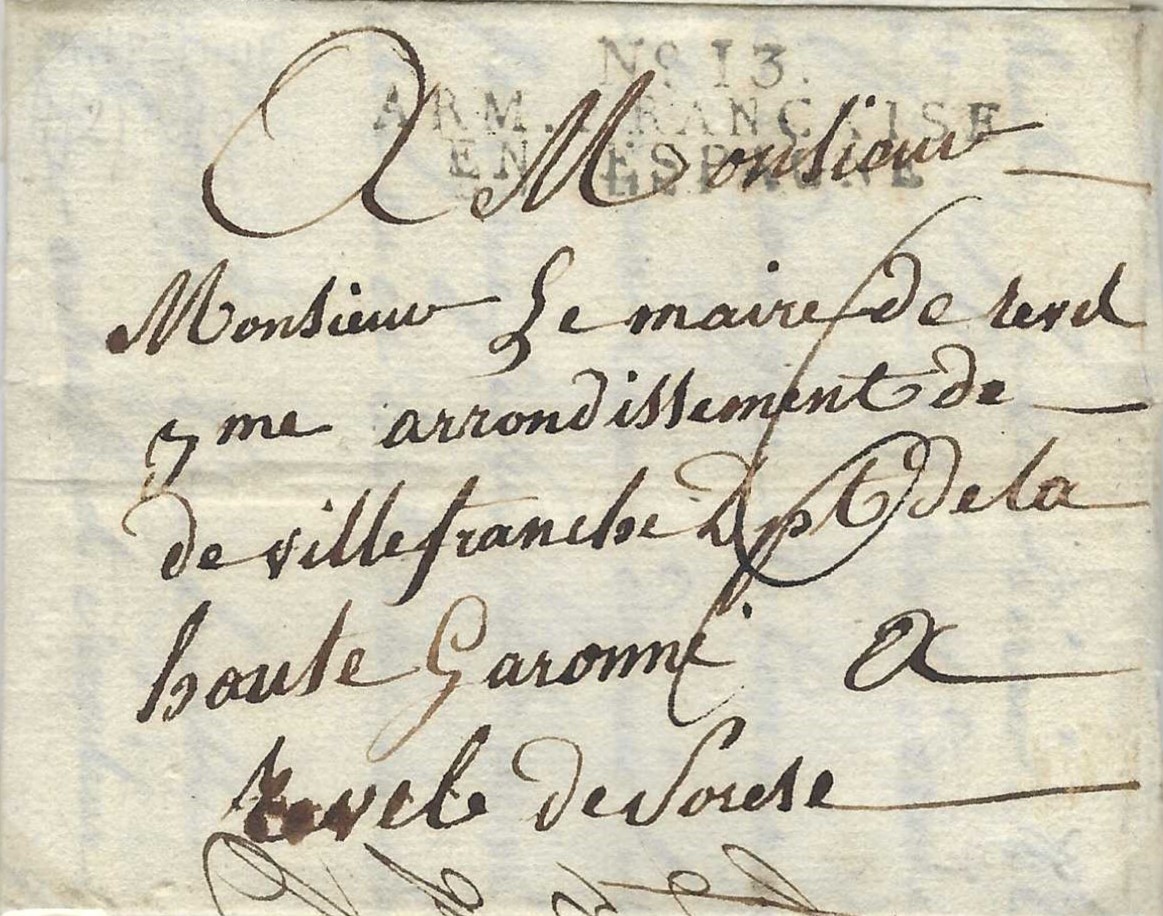 No 13.
ARM. FRANCAISE
EN ESPAGNE
A Monsieur
Monsieur Le maire de revel
3me arrondissement de
de villefranche Dpt de la
houte Garonne A
revele de Sorese